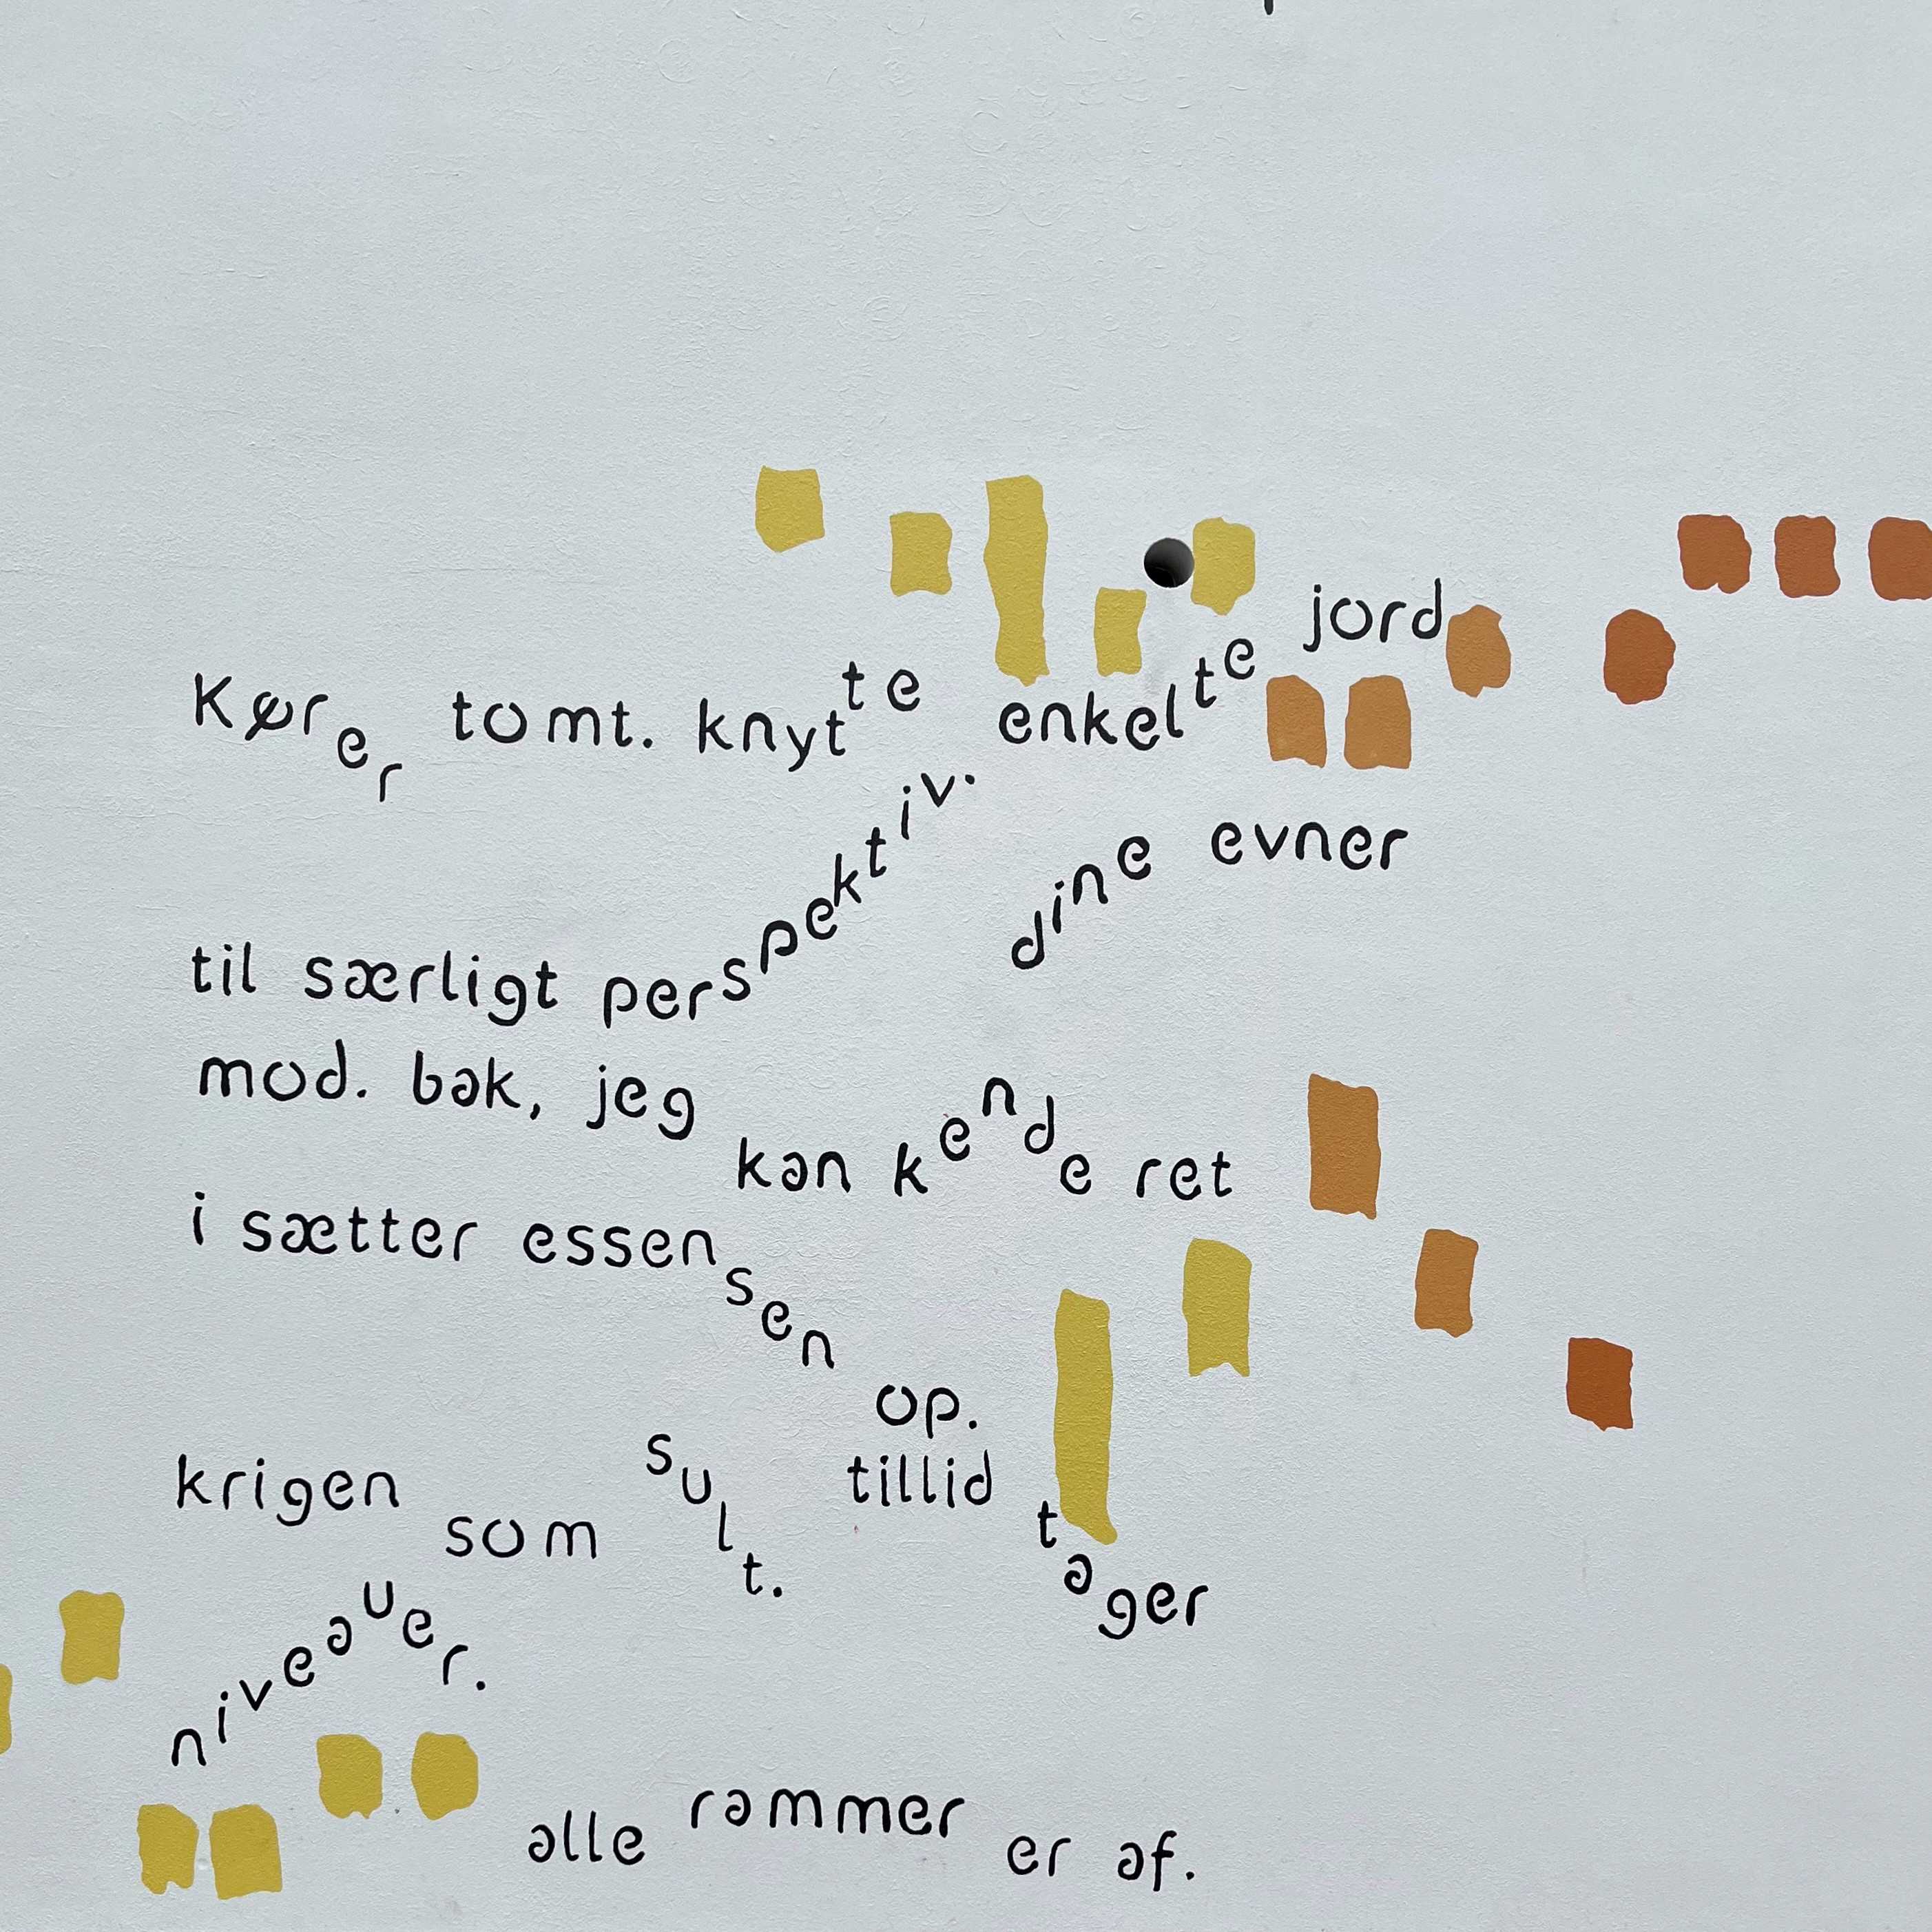 Kører tomt. knytte enkelte jord
dine evner
til særligt perspektiv.
mod. bak, jeg kan kende ret
i sætter essensen op.
krigen som sult. tillid tager
niveauer.
alle rammer er af.